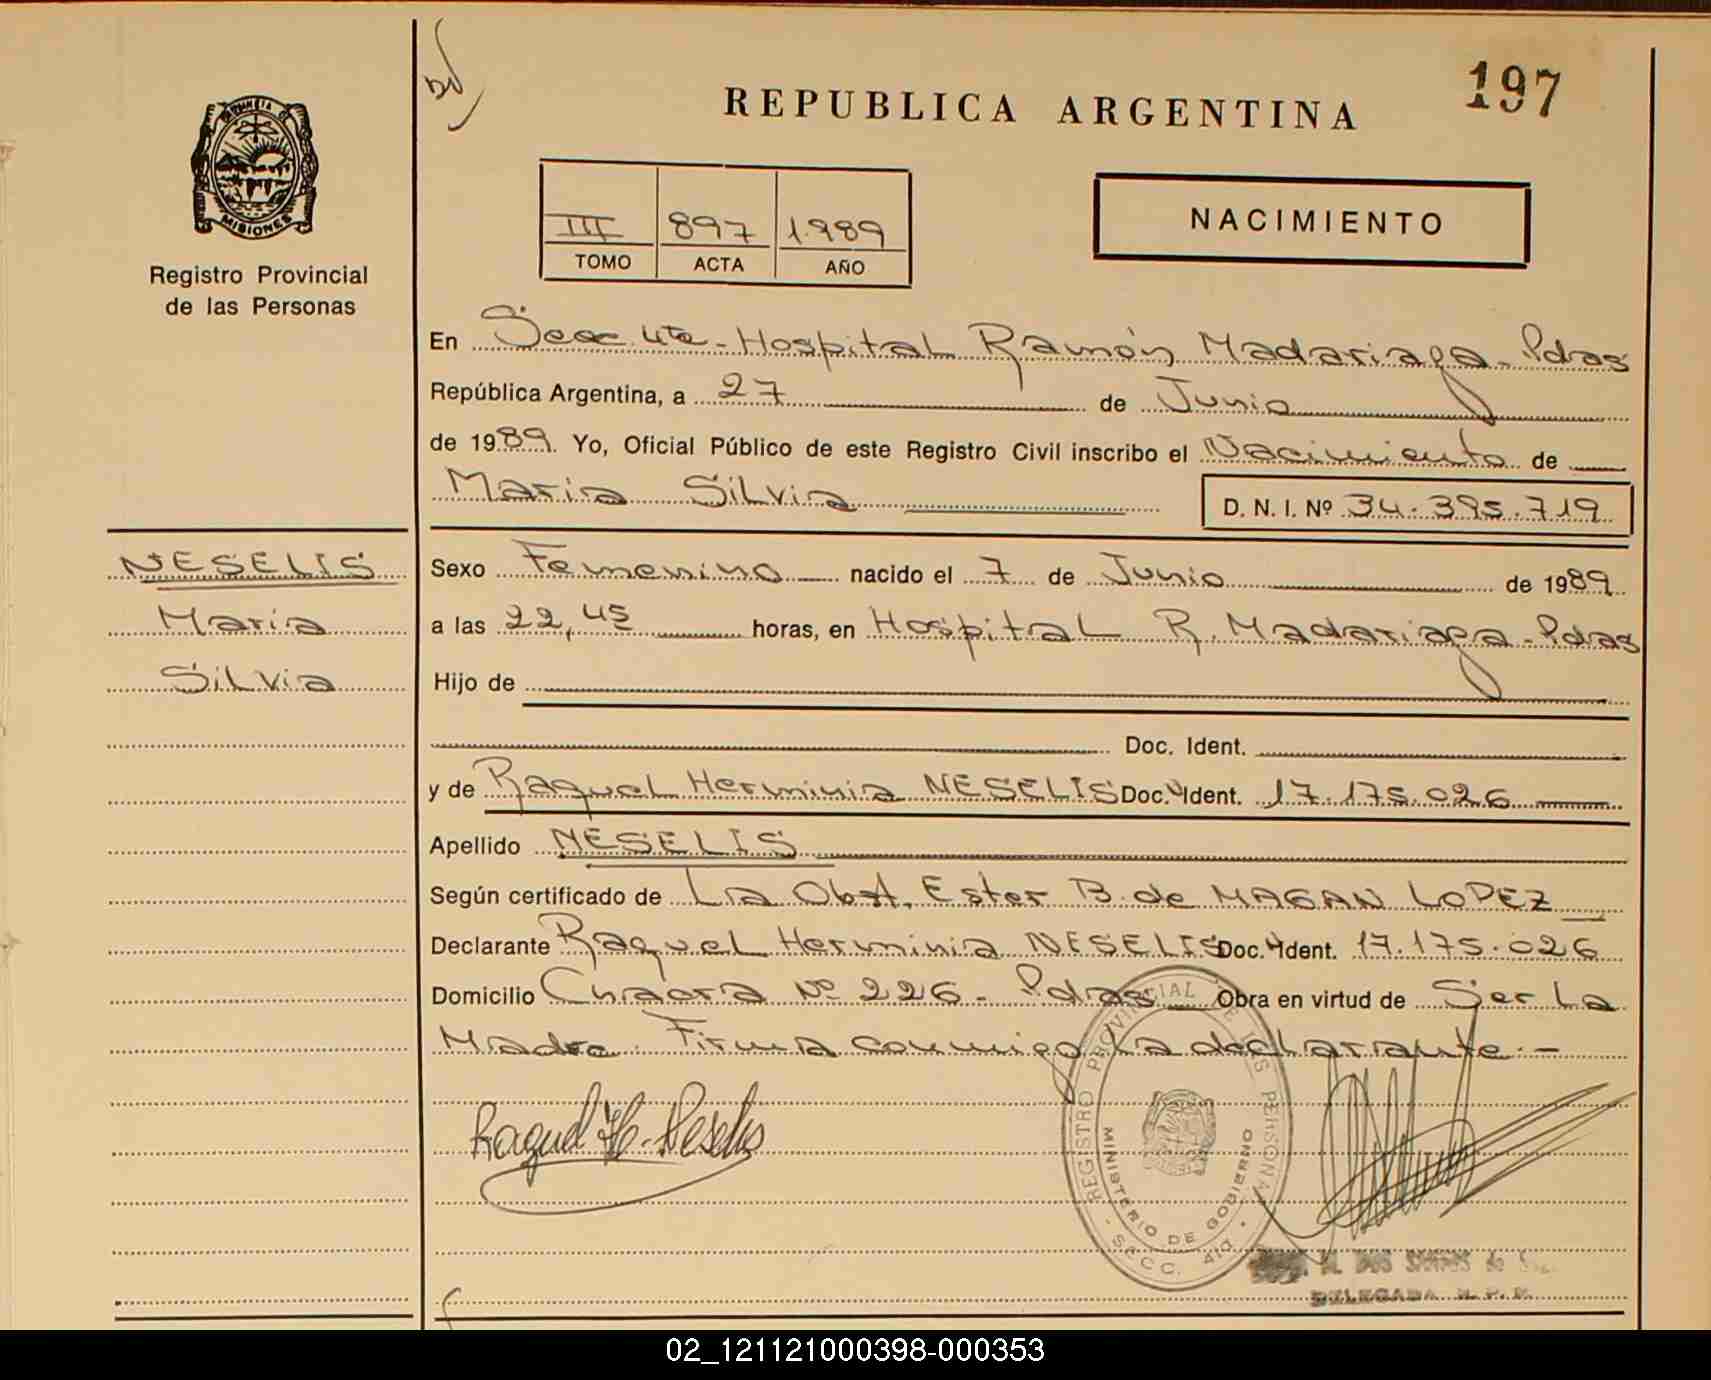 197
REPUBLICA ARGENTINA
III 897 1.989
TOMO ACTA AÑO
NACIMIENTO
MISIONES
Registro Provincial
de las Personas
En Secc 4ta - Hospital Ramón Madariaga - Pdas
República Argentina, a 27 de Junio
de 1989. Yo, Oficial Público de este Registro Civil inscribo el Nacimiento de
Maria Silvia
D. N. I. Nº 34.395.719
NESELIS
Maria
Silvia
Sexo Femenino nacido el 7 de Junio de 1989
a las 22,45 horas, en Hospital R. Madariaga - Pdas
Hijo de
Doc. Ident.
y de Raquel Herminia NESELIS Doc. Ident. 17.175.026
Apellido NESELIS
Según certificado de La Obst. Ester B. de MAGAN LOPEZ
Declarante Raquel Herminia NESELIS Doc. Ident. 17.175.026
Domicilio Chacra Nº 226 - Pdas Obra en virtud de Ser La
Madre. Firma conmigo La declarante.-
Raquel H. Neselis
REGISTRO PROVINCIAL DE LAS PERSONAS
MINISTERIO DE GOBIERNO
SECC. 4ta
M. DOS SANTOS de
DELEGADA R. P. P.
02_121121000398-000353